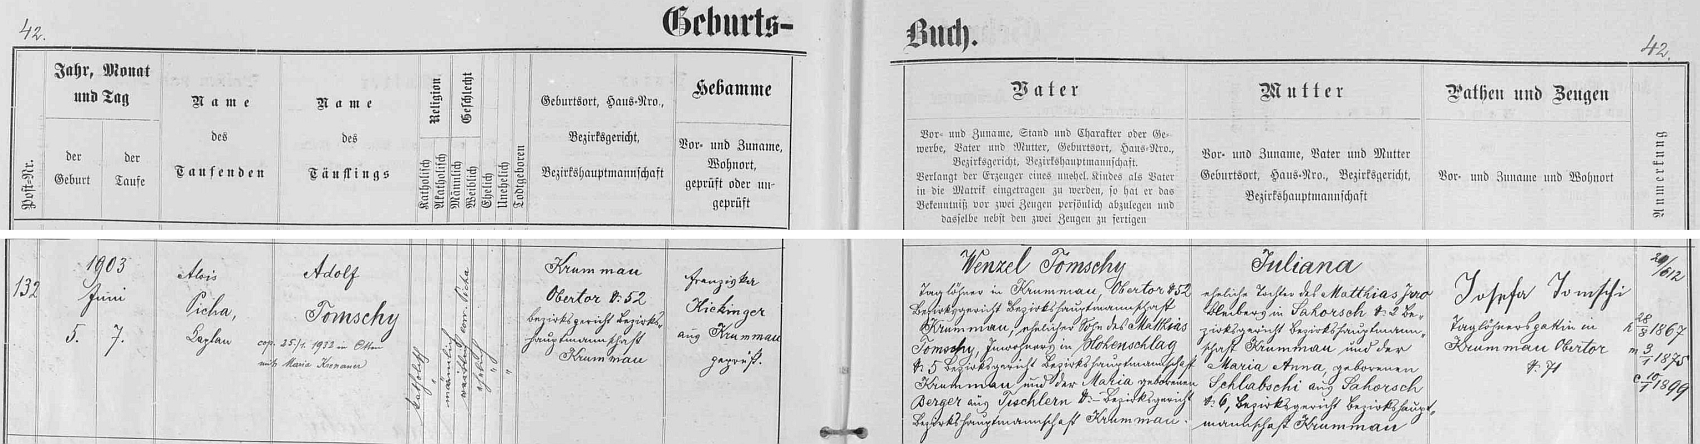 42.
Geburts-
Buch.
42.
Post-Nr.
Jahr, Monat
und Tag
der
Geburt
der
Taufe
Name
des
Taufenden
Name
des
Täuflings
Religion
Katholisch
Akatholisch
Geschlecht
Männlich
Weiblich
Ehelich
Unehelich
Todtgeboren
Geburtsort, Haus-Nro.,
Bezirksgericht,
Bezirkshauptmannschaft
Hebamme
Vor- und Zuname,
Wohnort,
geprüft oder un-
geprüft
Vater
Vor- und Zuname, Stand und Charakter oder Ge-
werbe, Vater und Mutter, Geburtsort, Haus-Nro.,
Bezirksgericht, Bezirkshauptmannschaft.
Verlangt der Erzeger eines unehel. Kindes als Vater
in die Matrik eingetragen zu werden, so hat er das
Bekenntniß vor zwei Zeugen persönlich abzulegen und
dasselbe nebst den zwei Zeugen zu fertigen
Mutter
Vor- und Zuname, Vater und Mutter
Geburtsort, Haus-Nro., Bezirksgericht,
Bezirkshauptmannschaft
Pathen und Zeugen
Vor- und Zuname und Wohnort
Anmerkung
132
1903
Juni
5. 7.
Alois
Picha,
Kaplan
Adolf
Tomschy
cop. 25/1. 1932 in
mit Maria Kronauer
katholisch
männlich
ehelich
Krummau
Obertor N: 52
Bezirksgericht Bezirks-
hauptmannschaft
Krummau
Franziska
Kickinger
aus Krummau
geprüft.
Wenzel Tomschy
Taglöhner in Krummau, Obertor N: 52
Bezirksgericht Bezirkshauptmannschaft
Krummau, ehelicher Sohn des Matthias
Tomschy, Inwohners in Hohenschlag
N: 5 Bezirksgericht Bezirkshauptmannschaft
Krummau und der Maria geborenen
Berger aus Tischlern N: – Bezirksgericht
Bezirkshauptmannschaft Krummau.
Juliana
eheliche Tochter des Matthias
in Sahorsch N: 2 Be-
zirksgericht Bezirkshauptmann-
schaft Krummau und der
Maria Anna, geborenen
Schlabschi aus Sahorsch
N: 6, Bezirksgericht Bezirkshaupt-
mannschaft Krummau
Josefa Tomschi
Taglöhnersgattin in
Krummau Obertor
N: 71
28/8 1867
m 3/1 1875
1899